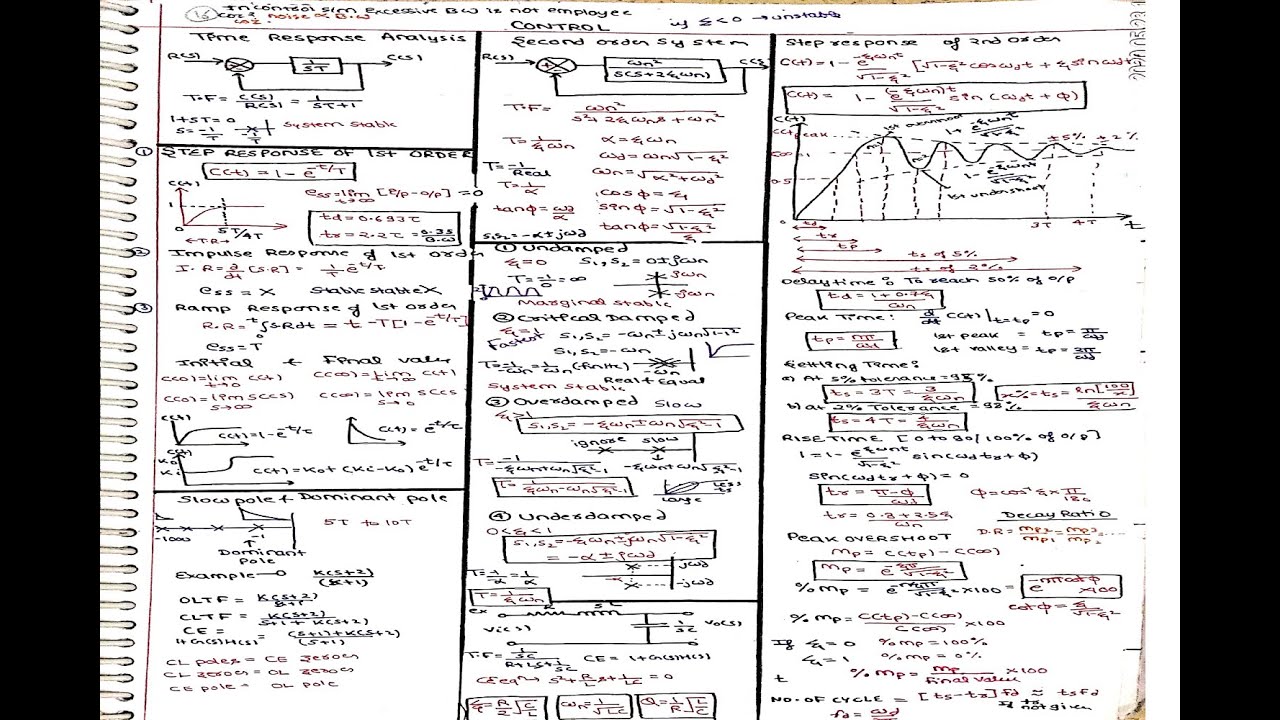 16 In control s/m Excessive B.W is not employee
coz: noise ∝ B.W
if ξ<0 → unstable
CONTROL
Time Response Analysis
R(S)
1/ST
C(S)
T.F = C(S)/R(S) = 1/(ST+1)
1+ST=0
S = -1/T
System stable
① STEP RESPONSE OF 1st ORDER
C(t) = 1 - e^(-t/T)
C(t)
ess = lim t→∞ [i/p - o/p] = 0
1
5T/4T
t
←T.R→
td = 0.693τ
tr = 2.2τ = 0.35/B.W
② Impulse Response of 1st order
I.R = d/dt (S.R) = 1/T e^(-t/T)
ess = X
③ Ramp Response of 1st order
R.R = ∫SRdt = t - T[1 - e^(-t/T)]
ess = T
Initial & Final value
C(0) = lim t→0 C(t) C(∞) = lim t→∞ C(t)
C(0) = lim s→∞ SC(S) C(∞) = lim s→0 SC(S)
C(t)
C(t) = 1 - e^(-t/τ)
C(t) = e^(-t/τ)
C(t)
K0
Ki
C(t) = K0 + (Ki-K0) e^(-t/τ)
Slow pole & Dominant pole
5T to 10T
-1000
-1
Dominant
pole
Example → K(S+2)/(S+1)
OLTF = K(S+2)/(S+1)
CLTF = K(S+2)/(S+1+K(S+2))
CE = 1+G(S)H(S) = ((S+1)+K(S+2))/(S+1)
CL poles = CE zeroes
CL zeroes = OL zeroes
CE pole = OL pole
Second order System
R(S)
ωn²/(S(S+2ξωn))
T.F = ωn²/(S²+2ξωnS+ωn²)
T = 1/(ξωn) α = ξωn
ωd = ωn√(1-ξ²)
T = -1/Real ωn = √(α²+ωd²)
T = 1/α cosφ = ξ
tanφ = ωd/α sinφ = √(1-ξ²)
S1,S2 = -α±jωd tanφ = √(1-ξ²)/ξ
① Undamped
ξ=0 S1,S2 = 0±jωn
T = 1/0 = ∞
jωn
-jωn
Marginal stable
② Critical Damped
ξ=1 S1,S2 = -ωn±jωn√(1-1²)
Fastest
S1,S2 = -ωn
-ωn
Real & Equal
System stable
③ Overdamped slow
ξ>1
S1,S2 = -ξωn±ωn√(ξ²-1)
ignore slow
T = -1/(-ξωn+ωn√(ξ²-1))
-ξωn-ωn√(ξ²-1) -ξωn+ωn√(ξ²-1)
T = 1/(ξωn-ωn√(ξ²-1))
Less
ts
Large
④ Underdamped
0<ξ<1
S1,S2 = -ξωn±jωn√(1-ξ²)
= -α±jωd
jωd
-jωd
T = 1/(ξωn)
ex R SL
Vi(S) 1/SC Vo(S)
T.F = (1/SC)/(R+LS+1/SC) CE = 1+G(S)H(S)
CE eqn → S²+R/L S+1/LC = 0
ξ = R/2 √(C/L) ωn = 1/√LC Q = 1/R √(L/C)
Step response of 2nd order
C(t) = 1 - e^(-ξωnt)/√(1-ξ²) [√(1-ξ²) cosωdt + ξ sinωdt]
C(t) = 1 - e^(-ξωn)t/√(1-ξ²) sin(ωdt+φ)
C(t)
C(t)peak
1st overshoot
±5% ±2%
C∞ 1
0.5
1st undershoot
0
3T 4T t
td
tr
tp
ts of 5%
ts of 2%
Delay time : To reach 50% of o/p
td = (1+0.7ξ)/ωn
Peak Time: d/dt C(t)|t=tp = 0
tp = nπ/ωd
1st peak = tp = π/ωd
1st valley = tp = 2π/ωd
Settling Time:
a) At 5% tolerance = 95%
ts = 3T = 3/(ξωn)
x% = ts = ln[100/x]/(ξωn)
b) at 2% Tolerance = 98%
ts = 4T = 4/(ξωn)
RISE TIME [0 to 90/100% of o/p]
1 = 1 - e^(-ξωnt)/√(1-ξ²) sin(ωdtr+φ)
sin(ωdtr+φ) = 0
tr = (π-φ)/ωd φ = cos⁻¹ξ × π/180
tr = (0.8+2.5ξ)/ωn
Decay Ratio
D.R = mp2/mp1 = mp3/mp2 = ....
Peak OVERSHOOT
mp = C(tp) - C(∞)
mp = e^(-ξπ/√(1-ξ²))
% mp = e^(-nξπ/√(1-ξ²)) ×100 = e^(-nπcotφ) ×100
cotφ = ξ/√(1-ξ²)
% mp = (C(tp)-C(∞))/C(∞) ×100
If ξ=0 %mp = 100%
ξ=1 %mp = 0%
t %mp = mp/Final value ×100
NO. OF CYCLE = [ts-tr]fd ≈ tsfd
If tr not given
fd = ωd